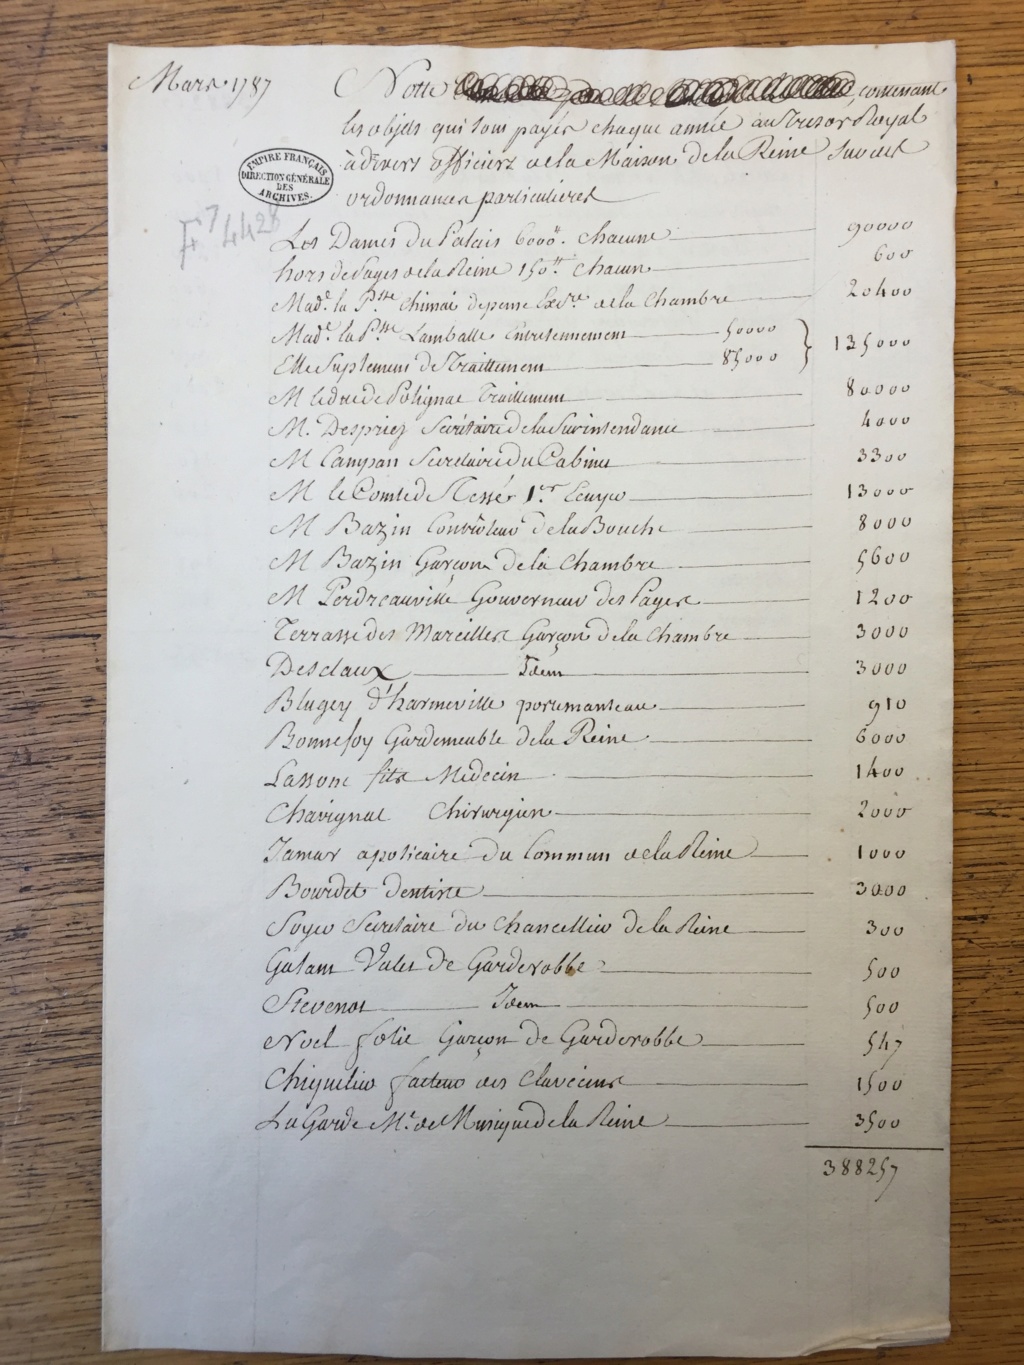 Mars 1787
Notte contenant
les objets qui sont payés chaque année au Tresor Royal
à divers officiers de la Maison de la Reine sur des
ordonnances particulieres
EMPIRE FRANÇAIS
DIRECTION GÉNÉRALE
DES
ARCHIVES.
F⁷ 4428
Les Dames du Palais 6000# chacune 90000
hors de Pages de la Reine 150# chacun 600
Made. la Psse Chimai depense Extre de la Chambre 20400
Made. la Psse Lamballe Entretennement 50000
Elle Suplement de Traittement 85000 } 135000
M le duc de Polignac Traittement 80000
M. Despriez Secrétaire de la Surintendance 4000
M Campan Secretaire du Cabinet 3300
M le Comte de Tessé 1er Ecuyer 13000
M Bazin Controleur de la Bouche 8000
M Bazin Garçon de la Chambre 5600
M Perdreauville Gouverneur des Pages 1200
Terrasse des Mareilles Garçon de la Chambre 3000
Desclaux Idem 3000
Blugey d'harmeville portemanteau 910
Bonnefoy Gardemeuble de la Reine 6000
Lassone fils Médecin 1400
Chavignat Chirurgien 2000
Jamar apoticaire du Commun de la Reine 1000
Bourdet dentiste 3000
Soyer Secretaire du Chancellier de la Reine 300
Galant Valet de Garderobbe 500
Stevenot Idem 500
Noel Jolie Garçon de Garderobbe 547
Chiquelier facteur des Clavecins 1500
La Garde Me. de Musique de la Reine 3500
388257